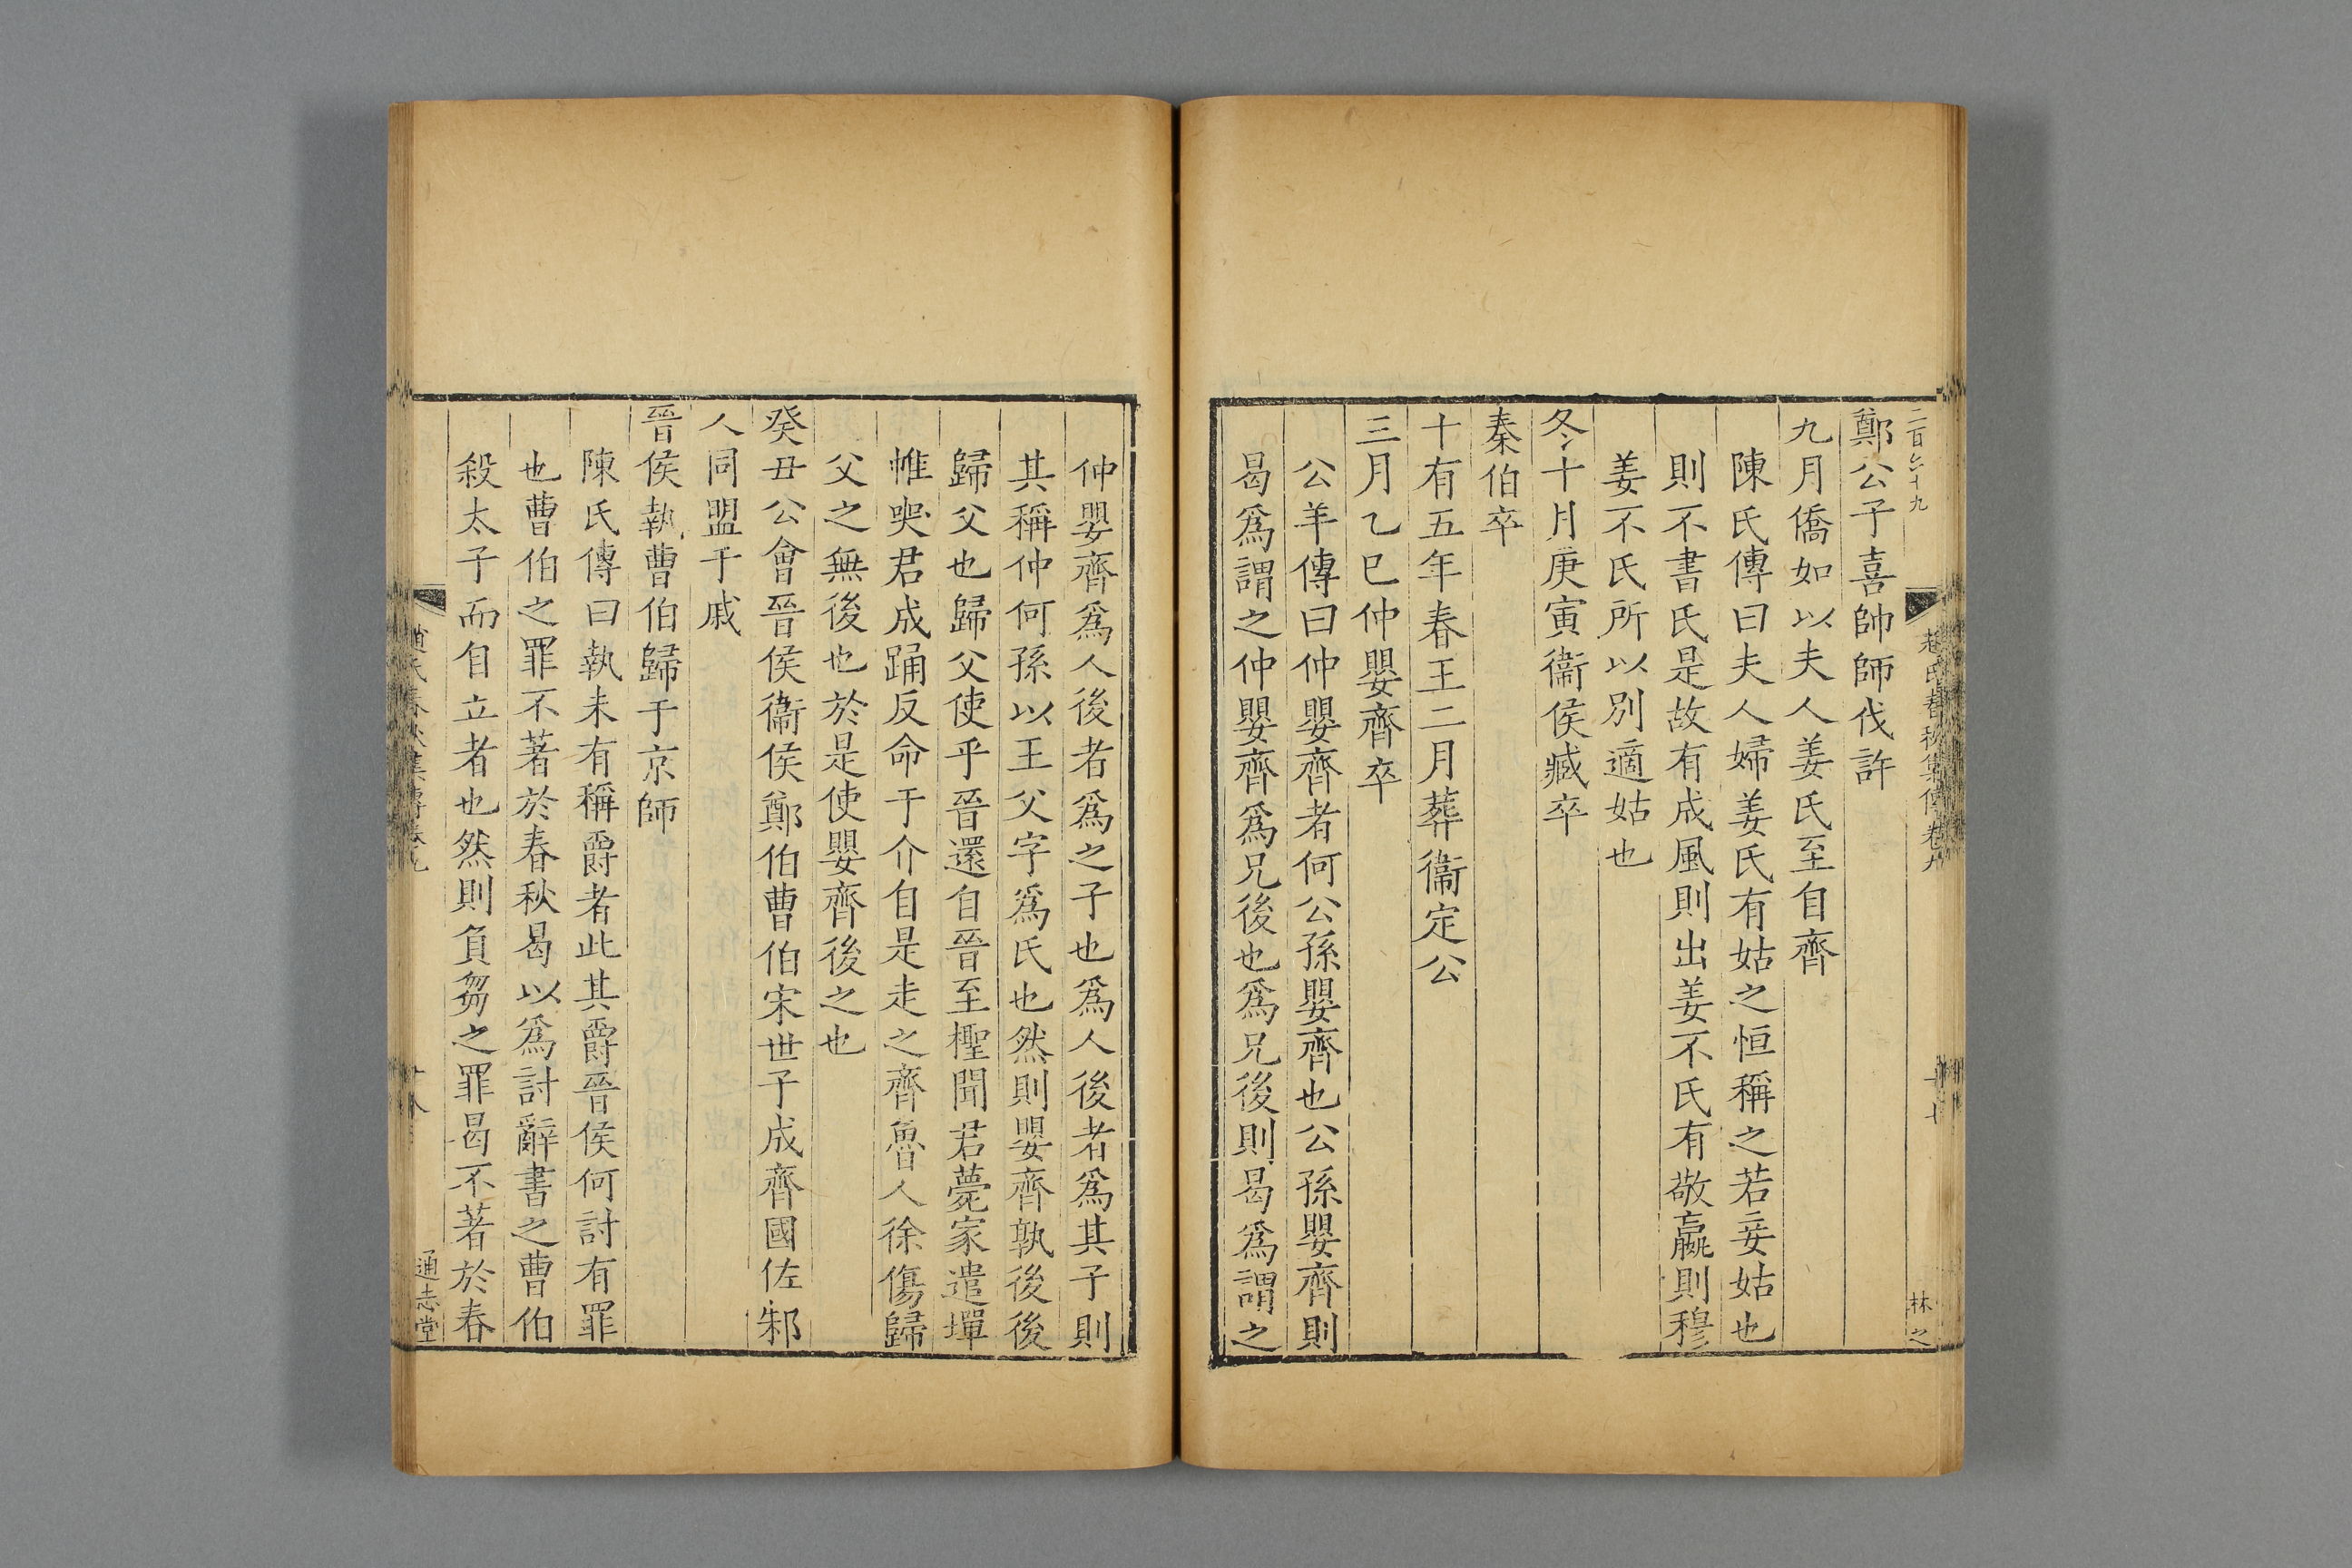 二百六十九
鄭公子喜帥師伐許
九月僑如以夫人姜氏至自齊
陳氏傳曰夫人婦姜氏有姑之恒稱之若妾姑也
則不書氏是故有成風則出姜不氏有敬嬴則穆
姜不氏所以別適姑也
冬十月庚寅衞侯臧卒
秦伯卒
十有五年春王二月葬衞定公
三月乙巳仲嬰齊卒
公羊傳曰仲嬰齊者何公孫嬰齊也公孫嬰齊則
曷爲謂之仲嬰齊爲兄後也爲兄後則曷爲謂之
林之
仲嬰齊爲人後者爲之子也爲人後者爲其子則
其稱仲何孫以王父字爲氏也然則嬰齊孰後後
歸父也歸父使乎晉還自晉至檉聞君薨家遣墠
帷哭君成踊反命于介自是走之齊魯人徐傷歸
父之無後也於是使嬰齊後之也
癸丑公會晉侯衞侯鄭伯曹伯宋世子成齊國佐邾
人同盟于戚
晉侯執曹伯歸于京師
陳氏傳曰執未有稱爵者此其爵晉侯何討有罪
也曹伯之罪不著於春秋曷以爲討辭書之曹伯
殺太子而自立者也然則負芻之罪曷不著於春
通志堂